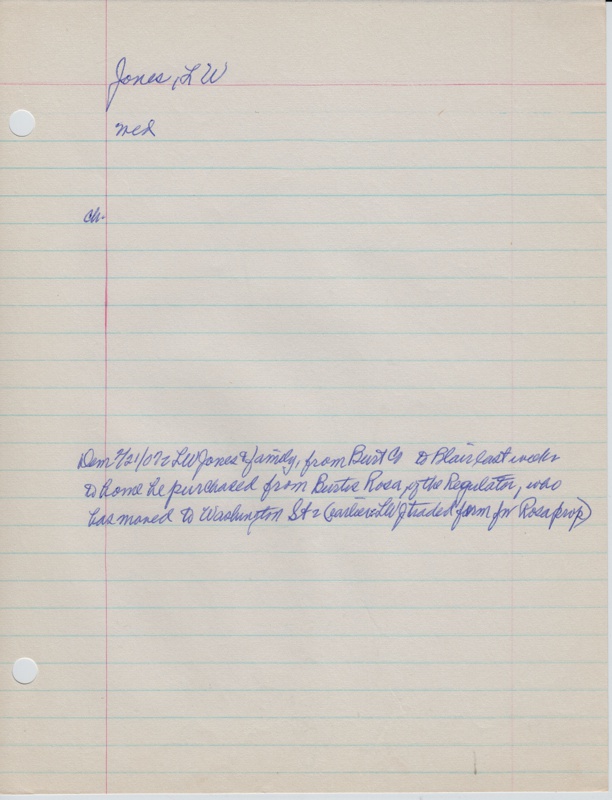 Jones, L W
med
ch.
Dem 2/21/07 = LW Jones & family, from Burt Co to Blair last week
to home he purchased from Burtis Rosa, of the Regulator, who
has moved to Washington St = (earlier LWJ traded farm for Rosa prop)